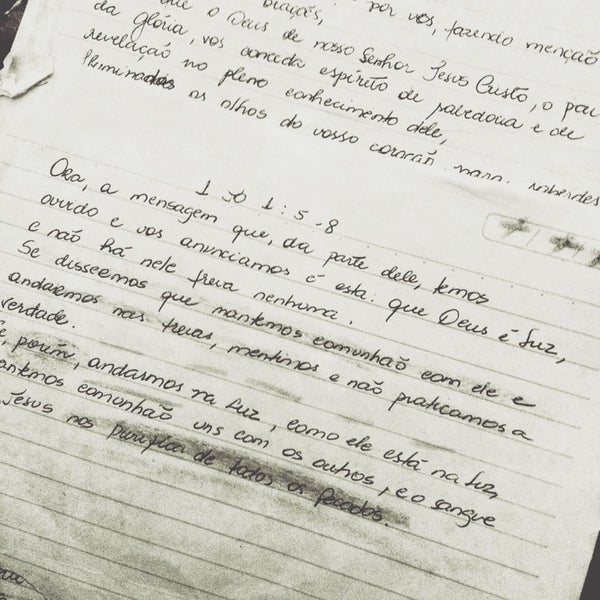 que o orações, por vós, fazendo menção
que o Deus de nosso Senhor Jesus Cristo, o pai
da glória, vos conceda espírito de sabedoria e de
revelação no pleno conhecimento dele,
Iluminados os olhos do vosso coração, para saberdes
1 Jo 1:5-8
Ora, a mensagem que, da parte dele, temos
ouvido e vos anunciamos é esta: que Deus é luz,
e não há nele treva nenhuma.
Se dissermos que mantemos comunhão com ele e
andarmos nas trevas, mentimos e não praticamos a
verdade.
porém, andarmos na luz, como ele está na luz,
mantemos comunhão uns com os outros, e o sangue
Jesus nos purifica de todos os pecados.